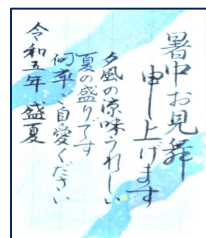 暑中お見舞
申し上げます
夕風の涼味うれしい
夏の盛りです
何卒ご自愛ください
令和五年 盛夏